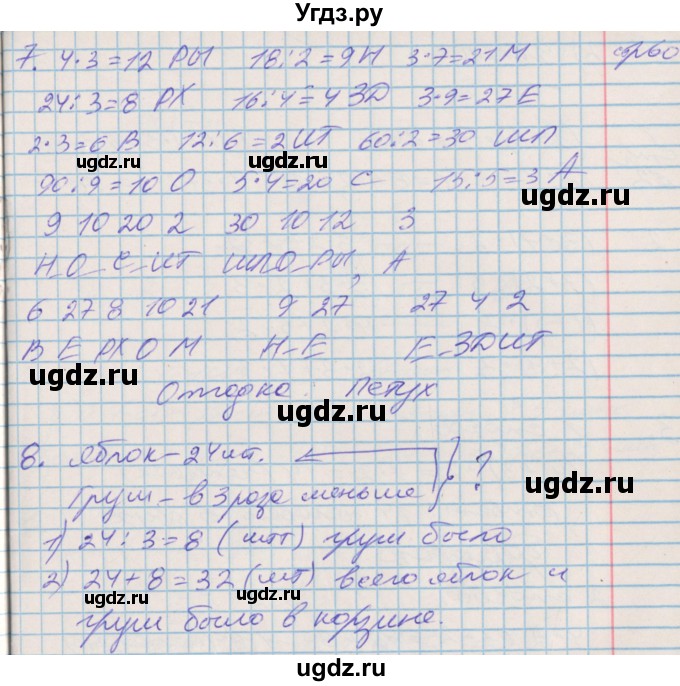 Угдз.ру
7. 4·3=12 РЫ 18:2=9 Н 3·7=21 М стр60
24:3=8 РХ 16:4=4 ЗД 3·9=27 Е
2·3=6 В 12:6=2 ИТ 60:2=30 ШП
ugdz.ru ugdz.ru ugdz.ru
90:9=10 О 5·4=20 С 15:5=3 А
ugdz.ru
9 10 20 2 30 10 12 3
Н-О-С-ИТ ШПО-РЫ, А
6 27 8 10 21 9 27 27 4 2
ugdz.ru ugdz.ru
В Е РХ О М Н-Е Е-ЗДИТ
ugdz.ru
Отгадка Петух
ugdz.ru
8. Яблок - 24 шт.
ugdz.ru ugdz.ru
Груш - в 3 раза меньше } ?
1) 24:3=8 (шт) груш было
ugdz.ru
2) 24+8=32 (шт) всего яблок и
ugdz.ru ugdz.ru
груш было в корзине.
ugdz.ru ugdz.ru